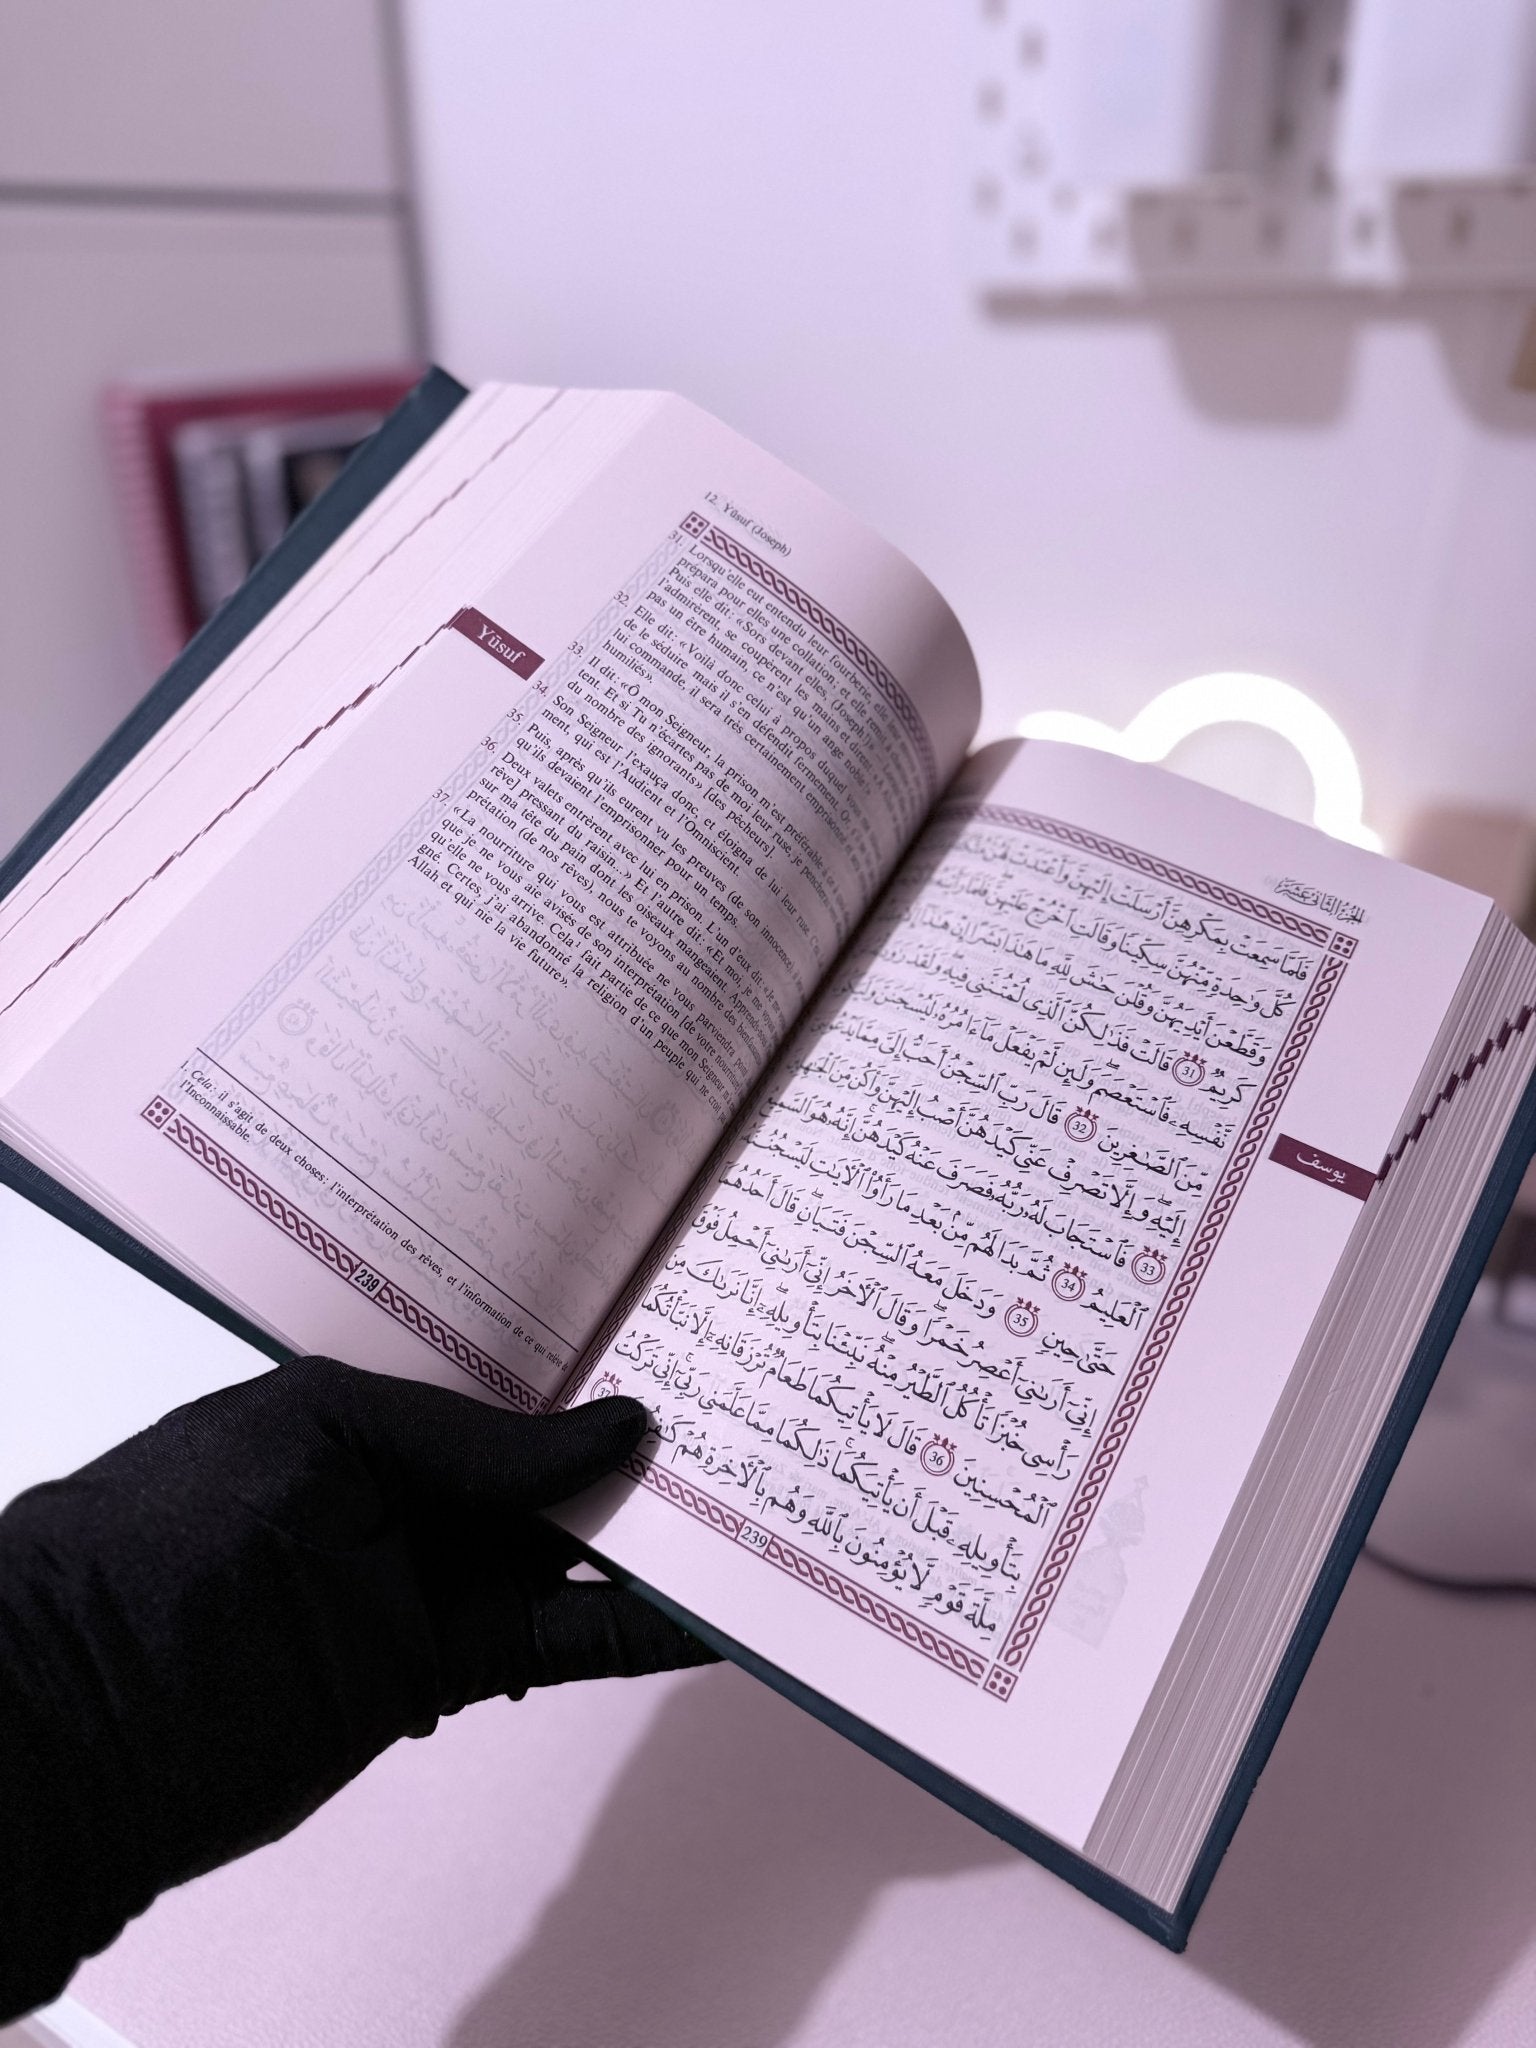 12. Yūsuf (Joseph)
31. Lorsqu'elle eut entendu leur fourberie, elle
prépara pour elles une collation; et elle remit à
Puis elle dit: «Sors devant elles, (Joseph!)»
l'admirèrent, se coupèrent les mains et dirent: «À
pas un être humain, ce n'est qu'un ange noble!»
32. Elle dit: «Voilà donc celui à propos duquel vous
de le séduire mais il s'en défendit fermement. Or, s'il
lui commande, il sera très certainement emprisonné
humiliés».
33. Il dit: «Ô mon Seigneur, la prison m'est préférable à ce
tent. Et si Tu n'écartes pas de moi leur ruse, je pencherai
du nombre des ignorants» [des pêcheurs].
34. Son Seigneur l'exauça donc, et éloigna de lui leur ruse.
ment, qui est l'Audient et l'Omniscient.
35. Puis, après qu'ils eurent vu les preuves (de son innocence),
qu'ils devaient l'emprisonner pour un temps.
36. Deux valets entrèrent avec lui en prison. L'un d'eux dit: «Je
rêve] pressant du raisin...» Et l'autre dit: «Et moi, je me voyais
sur ma tête du pain dont les oiseaux mangeaient. Apprends-nous
prétation (de nos rêves), nous te voyons au nombre des bienfaisants
37. «La nourriture qui vous est attribuée ne vous parviendra point
que je ne vous aie avisés de son interprétation [de votre nourriture]
qu'elle ne vous arrive. Cela¹ fait partie de ce que mon Seigneur m'a
gné. Certes, j'ai abandonné la religion d'un peuple qui ne croit
Allah et qui nie la vie future».
Yūsuf
1. Cela: il s'agit de deux choses; l'interprétation des rêves, et l'information de ce qui relève de
l'Inconnaissable.
239
الجزء الثاني عشر
فَلَمَّا سَمِعَتْ بِمَكْرِهِنَّ أَرْسَلَتْ إِلَيْهِنَّ وَأَعْتَدَتْ لَهُنَّ
كُلَّ وَٰحِدَةٍ مِّنْهُنَّ سِكِّينًا وَقَالَتِ ٱخْرُجْ عَلَيْهِنَّ فَلَمَّا رَأَيْنَهُۥٓ
وَقَطَّعْنَ أَيْدِيَهُنَّ وَقُلْنَ حَٰشَ لِلَّهِ مَا هَٰذَا بَشَرًا إِنْ هَٰذَآ
كَرِيمٌ 31 قَالَتْ فَذَٰلِكُنَّ ٱلَّذِى لُمْتُنَّنِى فِيهِ وَلَقَدْ
نَّفْسِهِۦ فَٱسْتَعْصَمَ وَلَئِن لَّمْ يَفْعَلْ مَآ ءَامُرُهُۥ لَيُسْجَنَنَّ
مِّنَ ٱلصَّٰغِرِينَ 32 قَالَ رَبِّ ٱلسِّجْنُ أَحَبُّ إِلَىَّ مِمَّا
إِلَيْهِ وَإِلَّا تَصْرِفْ عَنِّى كَيْدَهُنَّ أَصْبُ إِلَيْهِنَّ وَأَكُن مِّنَ ٱلْجَٰهِلِينَ
33 فَٱسْتَجَابَ لَهُۥ رَبُّهُۥ فَصَرَفَ عَنْهُ كَيْدَهُنَّ إِنَّهُۥ هُوَ ٱلسَّمِيعُ
ٱلْعَلِيمُ 34 ثُمَّ بَدَا لَهُم مِّنۢ بَعْدِ مَا رَأَوُا۟ ٱلْـَٔايَٰتِ لَيَسْجُنُنَّهُۥ
حَتَّىٰ حِينٍ 35 وَدَخَلَ مَعَهُ ٱلسِّجْنَ فَتَيَانِ قَالَ أَحَدُهُمَآ
إِنِّىٓ أَرَىٰنِىٓ أَعْصِرُ خَمْرًا وَقَالَ ٱلْـَٔاخَرُ إِنِّىٓ أَرَىٰنِىٓ أَحْمِلُ فَوْقَ
رَأْسِى خُبْزًا تَأْكُلُ ٱلطَّيْرُ مِنْهُ نَبِّئْنَا بِتَأْوِيلِهِۦٓ إِنَّا نَرَىٰكَ مِنَ
ٱلْمُحْسِنِينَ 36 قَالَ لَا يَأْتِيكُمَا طَعَامٌ تُرْزَقَانِهِۦٓ إِلَّا نَبَّأْتُكُمَا
بِتَأْوِيلِهِۦ قَبْلَ أَن يَأْتِيَكُمَا ذَٰلِكُمَا مِمَّا عَلَّمَنِى رَبِّىٓ إِنِّى تَرَكْتُ
مِلَّةَ قَوْمٍ لَّا يُؤْمِنُونَ بِٱللَّهِ وَهُم بِٱلْـَٔاخِرَةِ هُمْ كَٰفِرُونَ 37
يوسف
239